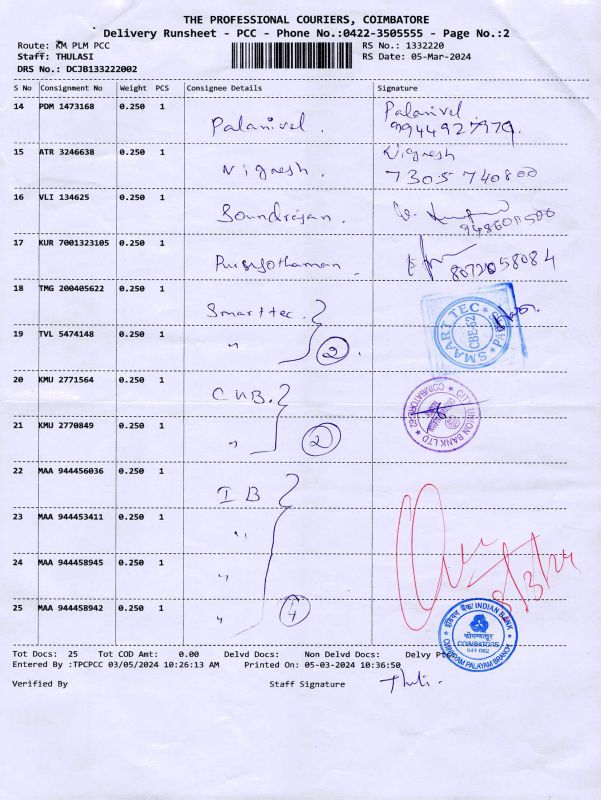 THE PROFESSIONAL COURIERS, COIMBATORE
Delivery Runsheet - PCC - Phone No.:0422-3505555 - Page No.:2
Route: KM PLM PCC
RS No.: 1332220
Staff: THULASI
RS Date: 05-Mar-2024
DRS No.: DCJB133222002
S No Consignment No Weight PCS Consignee Details Signature
14 PDM 1473168 0.250 1 Palanivel. Palanivel
9944927979.
15 ATR 3246638 0.250 1 Vignesh. Vignesh
7305740800
16 VLI 134625 0.250 1 Soundrajan.
17 KUR 7001323105 0.250 1 8072058084
18 TMG 200405622 0.250 1 Smarttec.
SMAART TEC * CBE-62
19 TVL 5474148 0.250 1 " 2.
20 KMU 2771564 0.250 1 CUB.
CITY UNION BANK LTD * COIMBATORE-62
21 KMU 2770849 0.250 1 " 2
22 MAA 944456036 0.250 1 IB
23 MAA 944453411 0.250 1 "
24 MAA 944458945 0.250 1 "
5/3/24
25 MAA 944458942 0.250 1 " 4
इंडियन बैंक/ INDIAN BANK
कोयम्बत्तूर
COIMBATORE
641 062
PALAYAM BRANCH
Tot Docs: 25 Tot COD Amt: 0.00 Delvd Docs: Non Delvd Docs: Delvy
Entered By :TPCPCC 03/05/2024 10:26:13 AM Printed On: 05-03-2024 10:36:50
Verified By Staff Signature